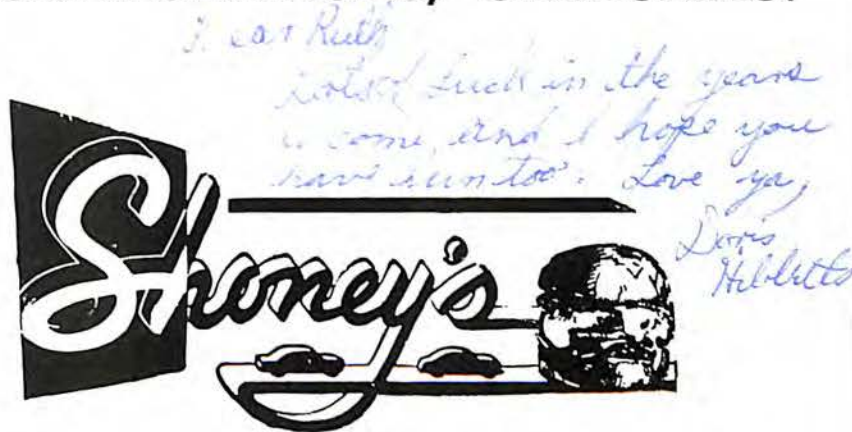 Dear Ruth
Lots of Luck in the years
to come, and I hope you
have fun too. Love ya,
Doris
Shoney's